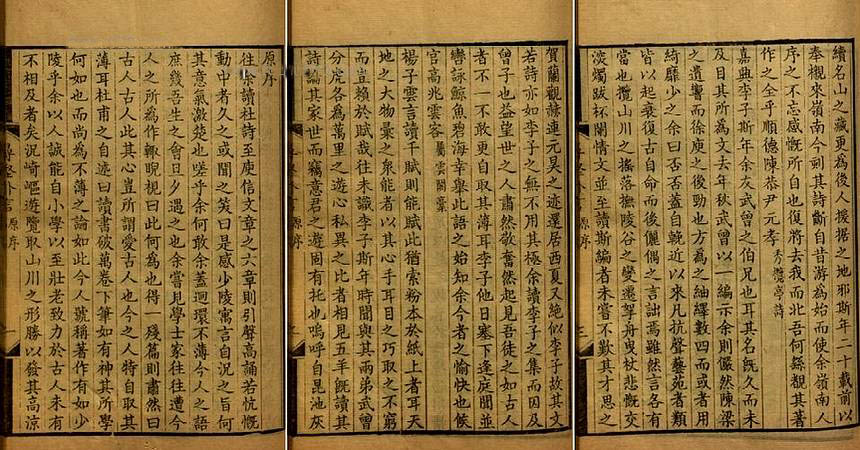 原序
往余讀杜詩至庾信文章之六章則引聲高誦若忼慨
動中者久之或聞之笑曰是感少陵寓言自況之旨何
其意氣激楚也嗟乎余何敢余蓋迴環不薄今人之語
庶幾吾生之會旦夕遇之也余嘗見學士家往往遭今
人之所為作輙睨視曰此何為也得一殘篇則肅然曰
古人古人此其心豈所謂愛古人也今之人特自取其
薄耳杜甫之自述曰讀書破萬卷下筆如有神其所學
何如也而尚為不薄之論如此今人號稱著作有如少
陵乎余以人誠能自小學以至壯老致力於古人未有
不相及者矣況崎嶇遊覽取山川之形勝以發其高涼
原序
賀蘭觀赫連元昊之迹還居西夏又絕似李子故其文
若詩亦如李子之無不用其極余讀李子之集而因及
曾子也益望世之人肅然敬奮然起見吾徒之如古人
者不一不敢更自取其薄耳李子他日塞下逢庭聞並
轡詠鯨魚碧海幸舉此語之始知余今者之愉快也侯
官高兆雲客 屬雲閣稾
楊子雲言讀千賦則能賦此猶索粉本於紙上者耳天
地之大物彙之衆能者以其心手耳目之巧取之不窮
而豈賴於賦哉往未識李子斯年時間與其兩弟武曾
分虎各為萬里之遊心私異之比者相見五羊旣讀其
詩論其家世而竊意君之遊固有托也嗚呼自昆池灰
原序
續名山之藏更為後人援据之地邪斯年二十載前以
奉檄來嶺南今刻其詩斷自昔游為始而使余嶺南人
序之不忘感慨所自也復將去我而北吾何繇觀其著
作之全乎順德陳恭尹元孝 秀攬亭詩
嘉興李子斯年余友武曾之伯兄也耳其名旣久而未
及目其所為文去年秋武曾以一編示余則儼然陳梁
之遺響而徐庾之後勁也方為之紬繹數四而或者用
綺靡少之余曰否否蓋自輓近以來凡抗聲藝苑者類
皆以起衰復古自命而後儷偶之言詘焉雖然言各有
當也攬山川之搖落撫陵谷之變遷拏舟曳杖悲慨交
淡燭跋杯闌情文並至讀斯編者未嘗不歎其才思之